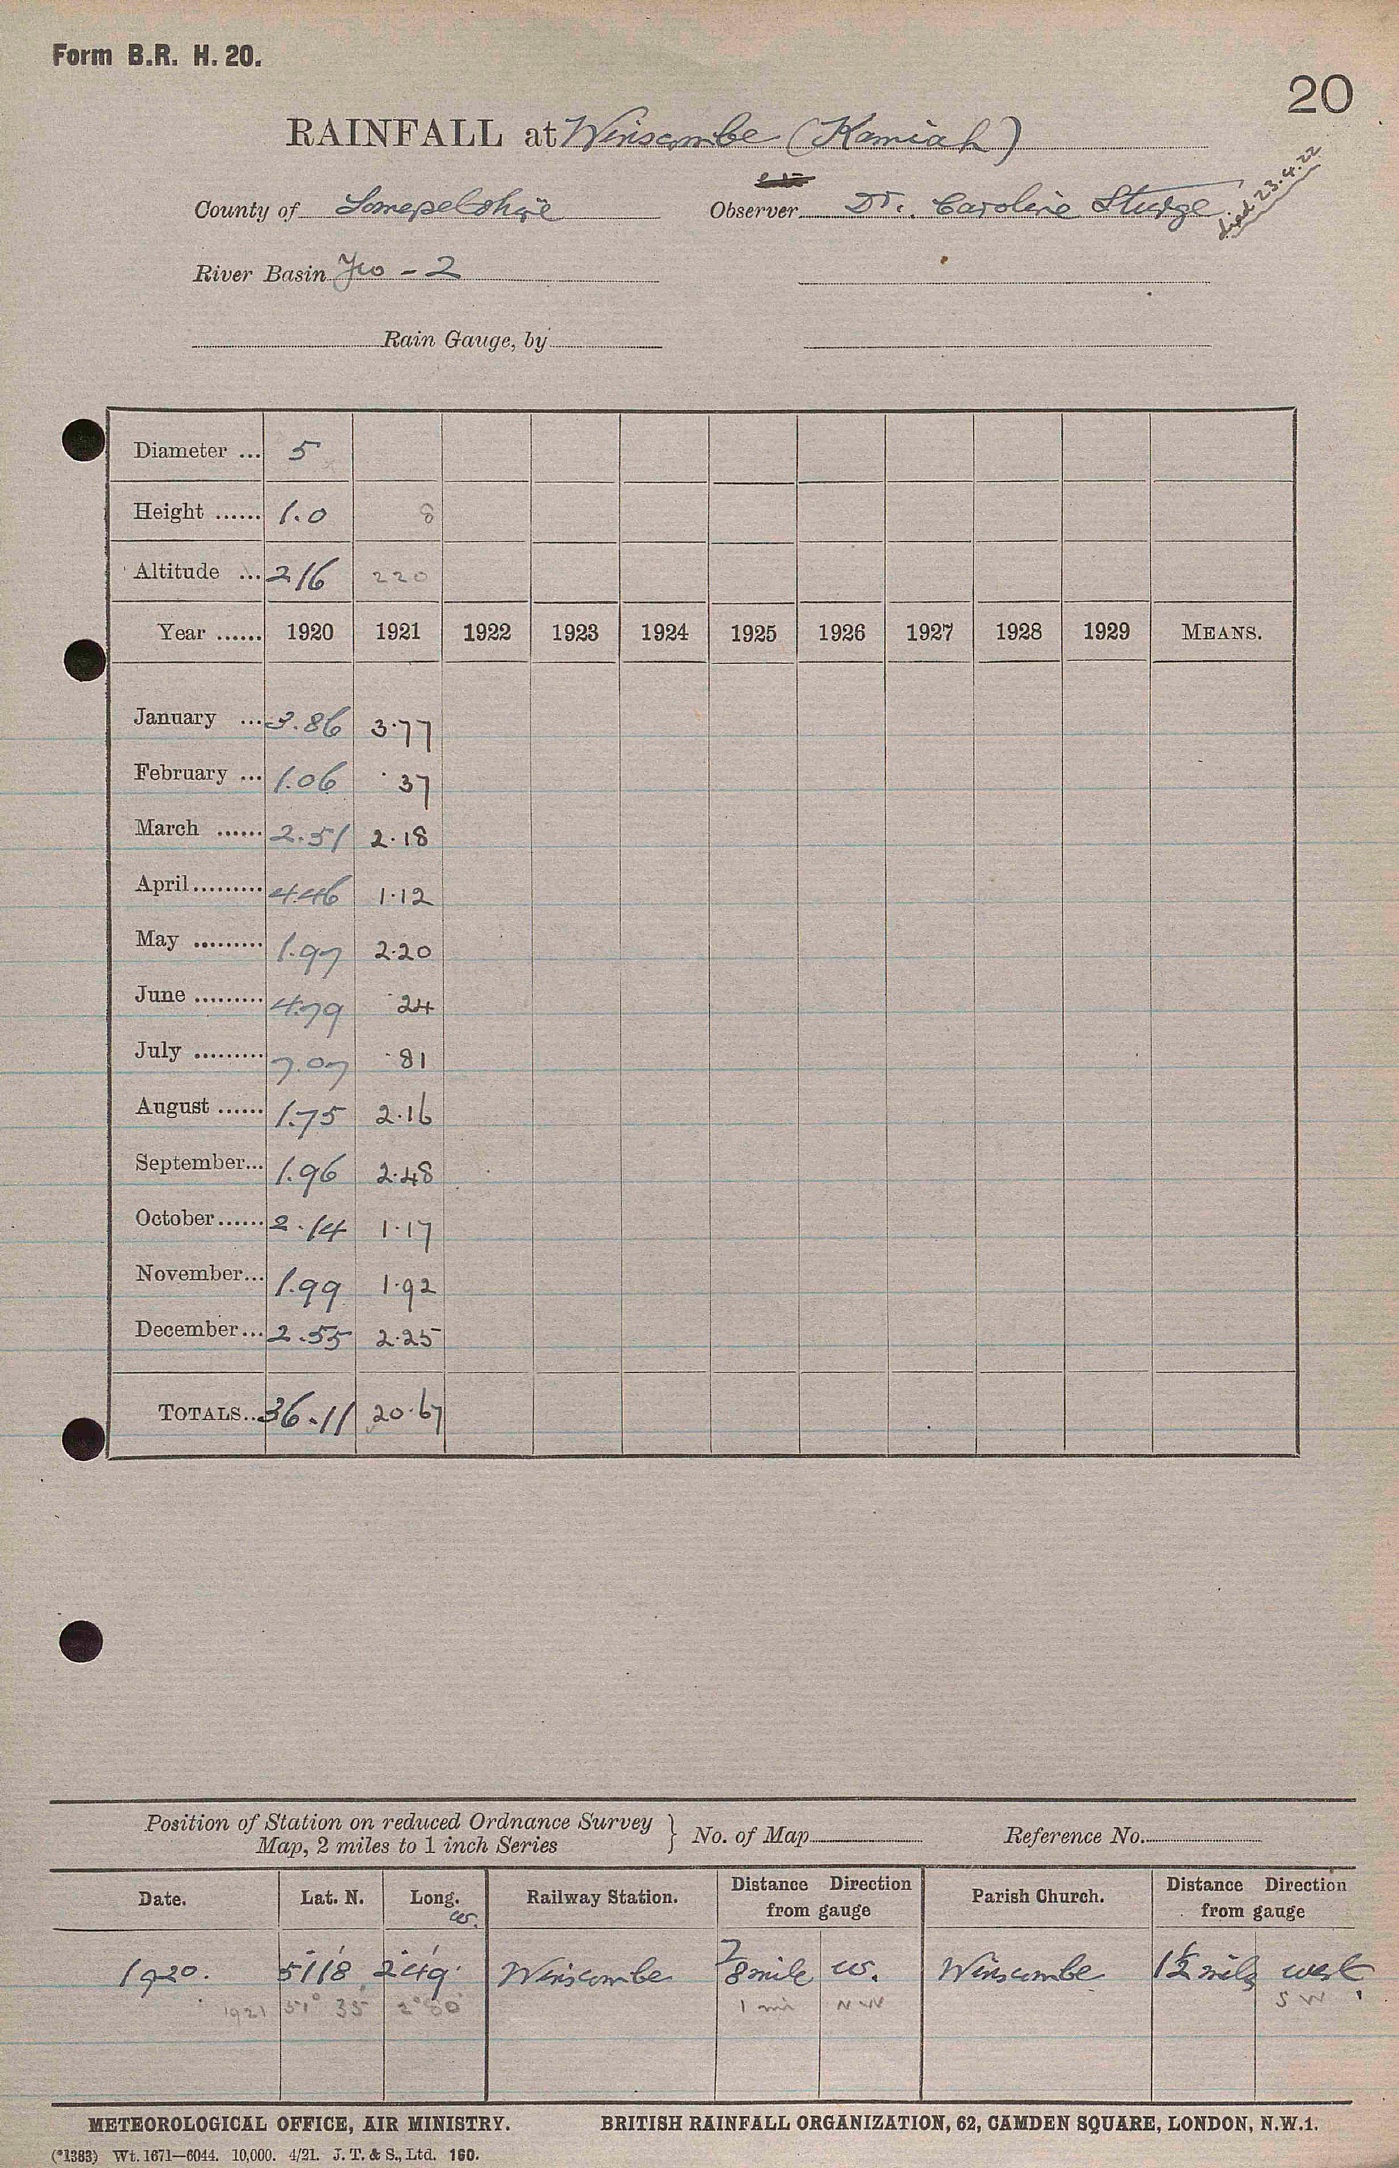 Form B.R. H. 20.
20
RAINFALL at Winscombe (Kamiah)
County of Somersetshire Observer Dr. Caroline Sturge died 23.4.22
River Basin Yeo - 2
Rain Gauge, by
Diameter ... 5
Height ...... 1.0 8
Altitude ... 216 220
Year ...... 1920 1921 1922 1923 1924 1925 1926 1927 1928 1929 MEANS.
January ... 3.86 3.77
February ... 1.06 .37
March ...... 2.51 2.18
April......... 4.46 1.12
May ......... 1.97 2.20
June ......... 4.79 .24
July ......... 7.07 .81
August ...... 1.75 2.16
September... 1.96 2.48
October...... 2.14 1.17
November... 1.99 1.92
December... 2.55 2.25
TOTALS.. 36.11 20.67
Position of Station on reduced Ordnance Survey
Map, 2 miles to 1 inch Series } No. of Map Reference No.
Date. Lat. N. Long. W. Railway Station. Distance Direction from gauge Parish Church. Distance Direction from gauge
1920. 51°18' 2°49' Winscombe 7/8 mile W. Winscombe 1½ mile west
1921 51° 35' 2° 50' 1 mi NW SW
METEOROLOGICAL OFFICE, AIR MINISTRY. BRITISH RAINFALL ORGANIZATION, 62, CAMDEN SQUARE, LONDON, N.W.1.
(*1383) Wt. 1671—6044. 10,000. 4/21. J. T. & S., Ltd. 160.